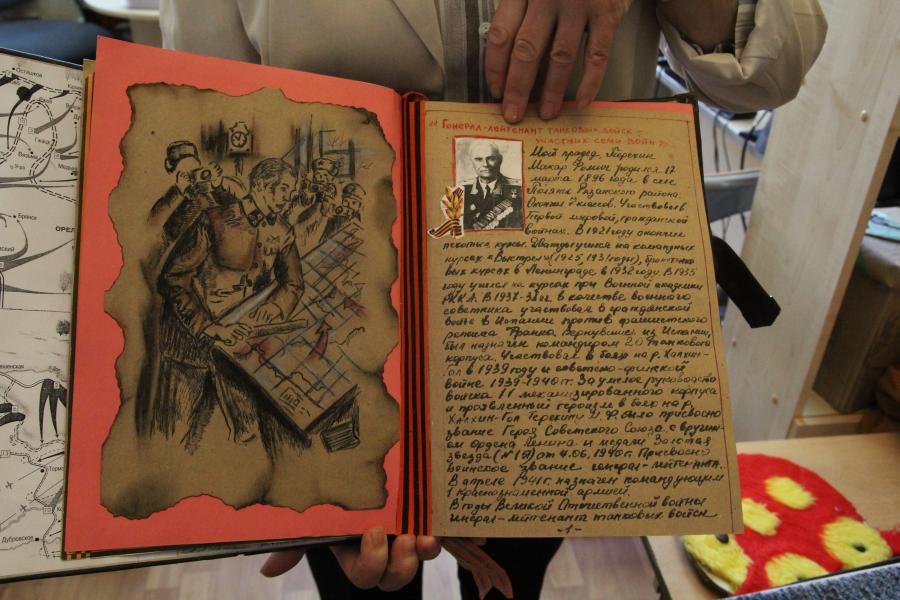 Осташков
Вязьма
Брянск
Дубровское
" Генерал-лейтенант танковых войск -
участник семи войн "
Мой прадед Терёхин
Макар Фомич родился 17
марта 1896 года в селе
Поляны Рязанского района.
Окончил 7 классов. Участвовал в
Первой мировой, гражданской
войнах. В 1921 году окончил
пехотные курсы. Дважды учился на командных
курсах «Выстрел» (1925, 1931 годы), бронетанко
вых курсах в Ленинграде в 1932 году. В 1935
году учился на курсах при Военной академии
РККА. В 1937-38 гг. в качестве военного
советника участвовал в гражданской
войне в Испании против фашистского
режима Франко. Вернувшись из Испании,
был назначен командиром 20 танкового
корпуса. Участвовал в боях на р. Халхин-
Гол в 1939 году и советско-финской
войне 1939-1940 гг. За умелое руководство
войска 11 механизированного корпуса
и проявленный героизм в боях на р.
Халхин-Гол Терёхину М.Ф. было присвоено
звание Героя Советского Союза с вручени-
ем ордена Ленина и медали Золотая
звезда (№ ) от 4.06.1940 г. Присвоено
воинское звание генерал-лейтенанта.
В апреле 1941г. назначен командующим
1 Краснознаменной армией.
В годы Великой Отечественной войны
генерал-лейтенанта танковых войск
-1-